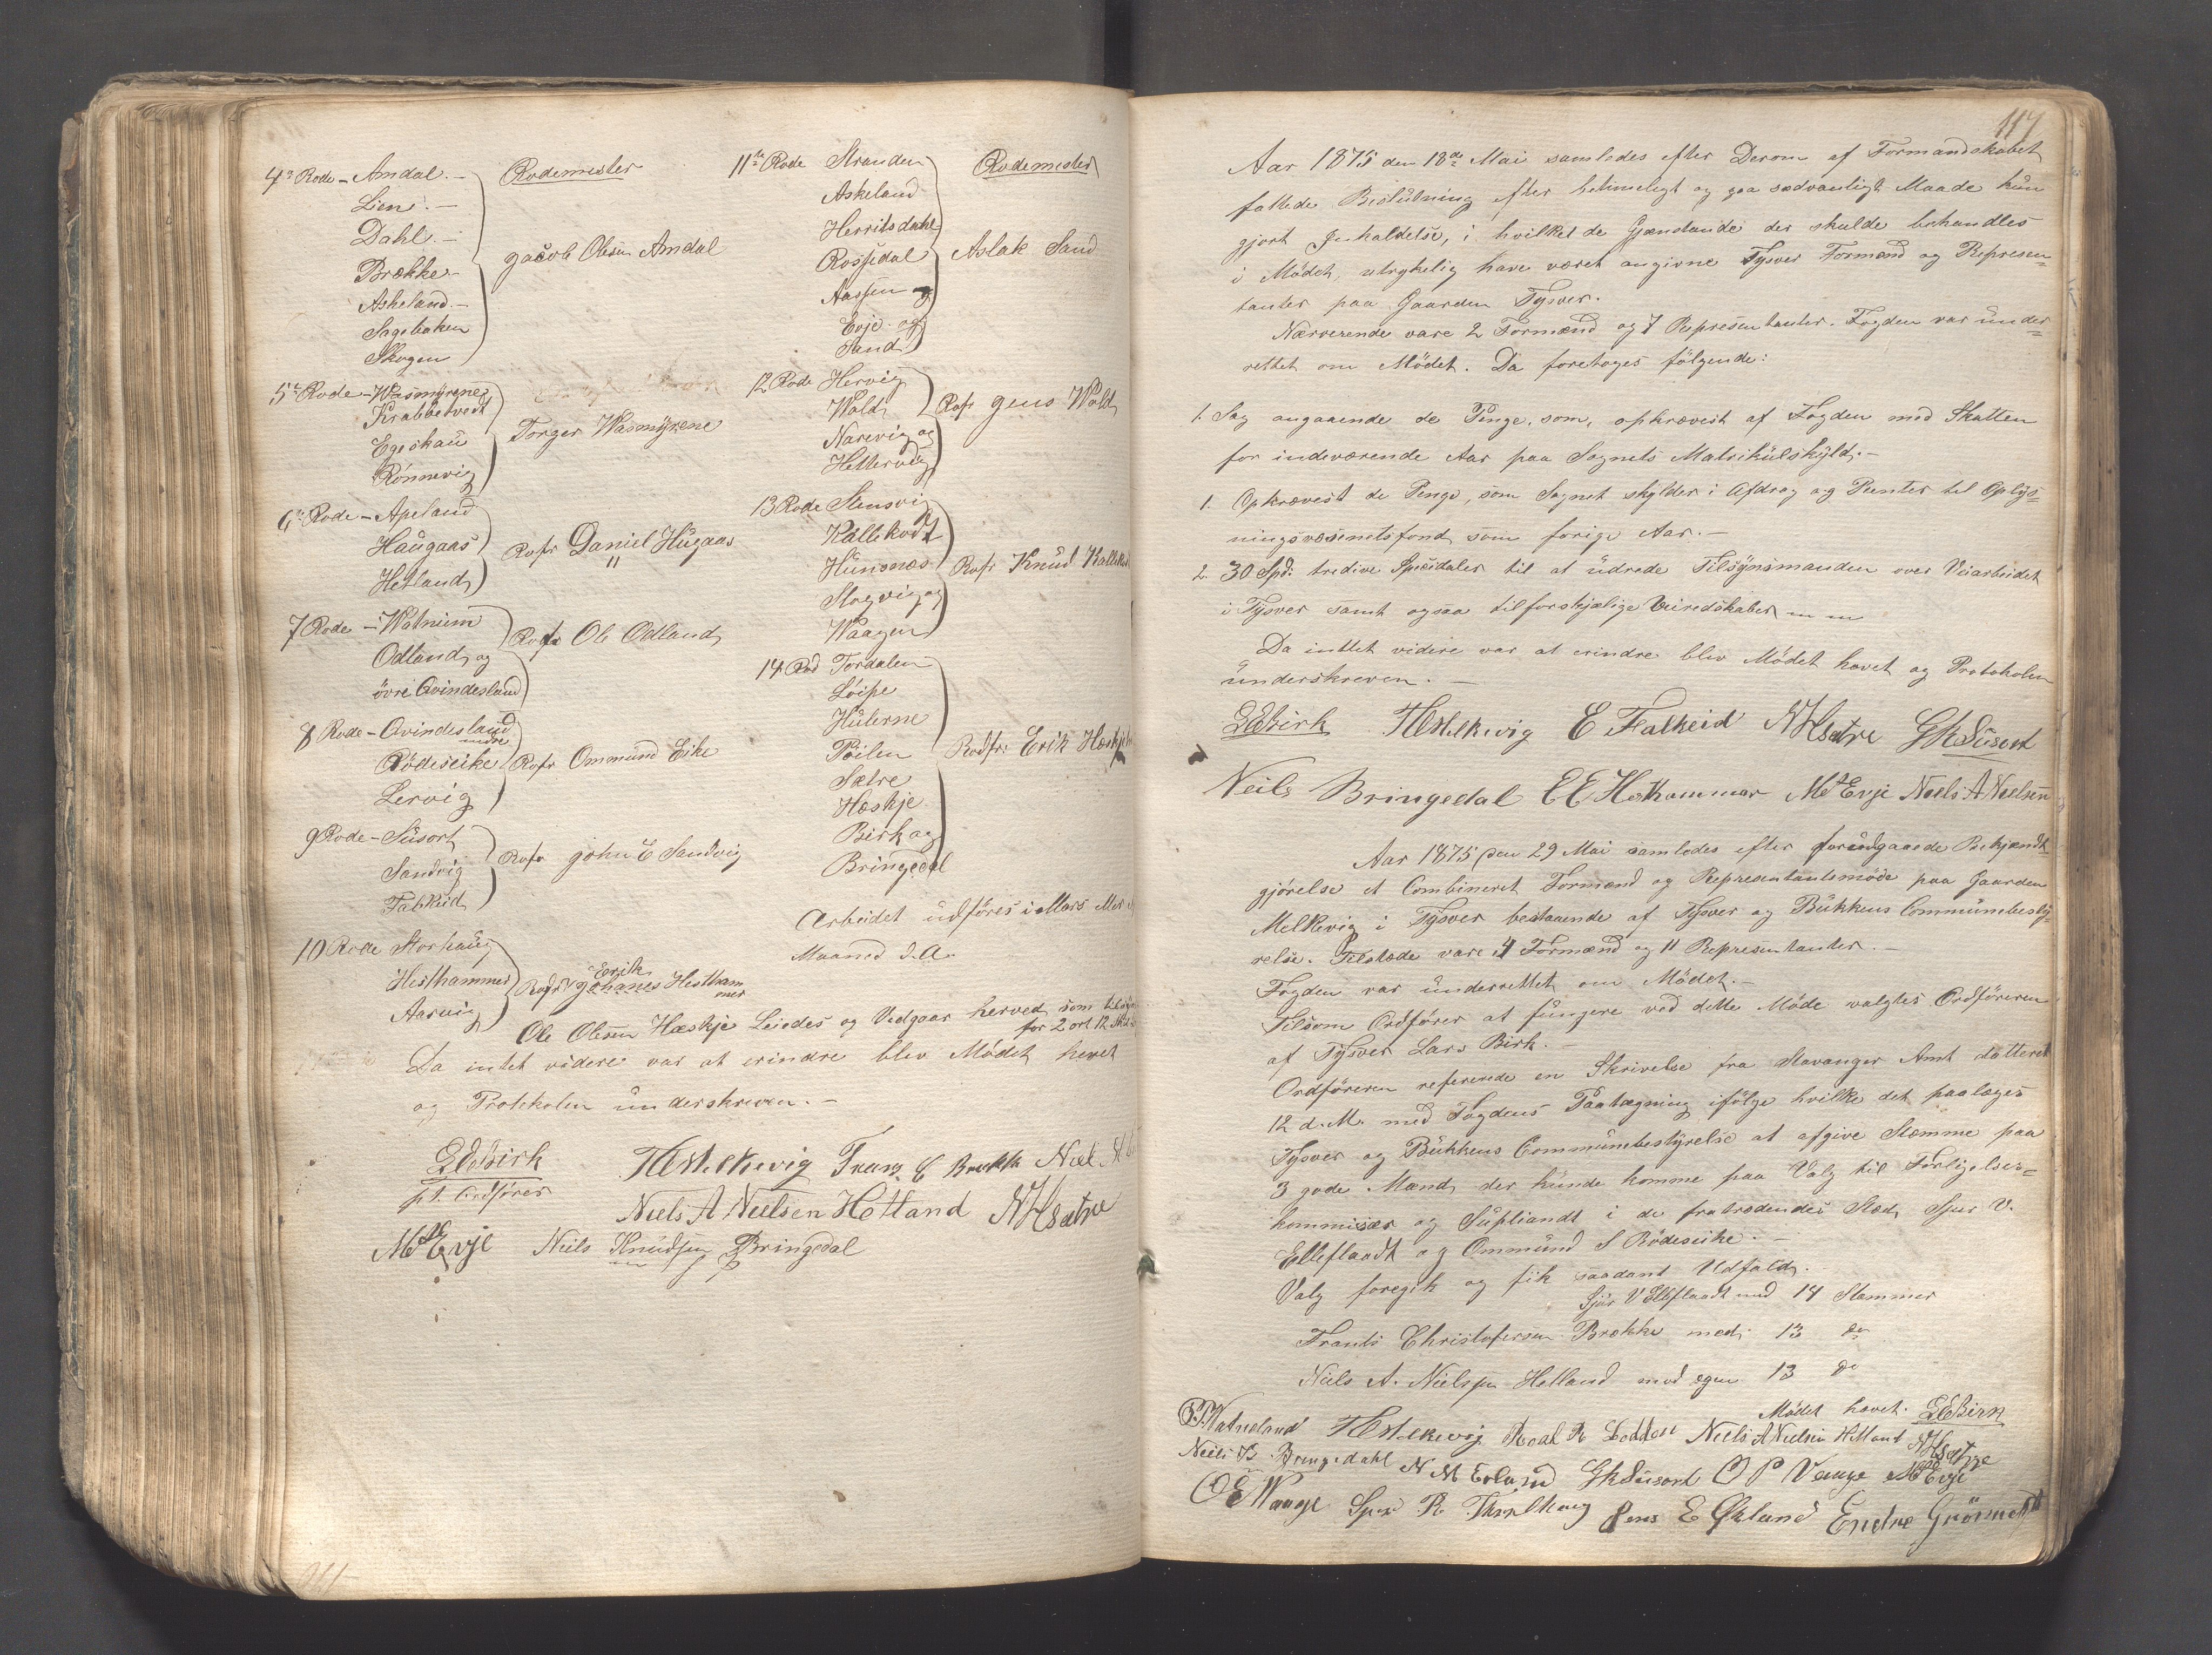 4de Rode - Amdal. -
Rodemester
Liene. -
Dahl. -
Brække -
Jacob Olsen Amdal
Askeland. -
Sagebaken
Skogen
5te Rode - Wasmyrene
Krabbetvedt
Torger Wasmyrene
Egeskau
Rönnevig
6te Rode - Apeland
Haugaas
Rofr Daniel Hugaas
Hetland
7 Rode - Watnum
Odland og
Rofr Ole Odland
övre Qvindesland
8 Rode - Qvindesland
nedre
Rödeseike
Rofr Ommund Eike
Lervig
9 Rode - Susort
Sandvig
Rofr John E Sandvig
Falkeid
10 Rode Storhaug
Hesthammer
Rofr Erik Johanes Hestham
mer
Aarvig
11te Rode Stranden
Rodemester
Askeland
Herritsdahl
Rossedal
Aslak Sand
Aassen og
Evje og
Sand
12 Rode Hervig
Wold
Rofr Jens Wold
Narevig og
Hettervig
13 Rode Stensvig
Kallekodt
Hunsnæs
Rofr Knud Kalleko
Slogvig og
Waagen
14 Rod Tordalen
Löipe
Hulerne
Töilen
Rodfr: Erik Hæskje
Sætre
Hæskje
Birk og
Bringedal
Arbeidet udföres i Mars
Maaned d.A.
Ole Olesen Hæskje Leiedes og Vedgaar herved som
for 2 ort 12 Skil
Da intet videre var at erindre blev Mödet hevet
og Protokolen underskreven. -
LEBirk
HMelkevig Frans C Brekk
pt. Ordförer
Niels A Nielsen Hetland NHsætre
MAEvje Neils Knudsen Bringedal
117
Aar 1875 den 18de Mai samledes efter Derom af Formandskabet
fattede Beslutning efter betimeligt og paa sædvanligt Maade kun
gjort Inhaldelse, i hvilket de Gjenstande der skulde behandles
i Mödet, utrykelig have været angivne Tysver Formænd og Represen=
tanter paa Gaarden Tysver.
Nærverende vare 2 Formænd og 7 Representanter. Fogden var under=
rettet om Mödet. Da foretoges fölgende:
1. Sag angaaende de Penge, som, opkrævest af Fogden med Skatten
for indeværende Aar paa Sognets Matrikulskyld. -
1. Opkrævest de Penge, som Sognet skylder i Afdrag og Renter til Oplys=
ningsvæsenetsfond som forige Aar. -
2. 30 Spd: tredive Speidaler til at udrede Tilsynsmanden over Veiarbeidet
i Tysver samt ogsaa til forskjælige Veiredskaber
Da inttet videre var at erindre blev Mödet hævet og Protokolen
underskreven. -
LEBirk HMelkevig E Falkeid NHsætre GKSusort
Neils Bringedal EEHestammer MAEvje Neels A Neelsen
Aar 1875 den 29 Mai samledes efter forudgaaede Bekjændt=
gjörelse et Combineret Formænd og Representantsmöde paa Gaarden
Melkevig i Tysver bestaaende af Tysver og Bukkens Communebesty=
relse. Tilstæde vare 4 Formænd og 11 Representanter. -
Fogden var underrettet om Mödet. -
Tilsom Ordförer at fungere ved dette Möde valgtes Ordföreren
af Tysver Lars Birk. -
Ordföreren refererede en Skrivelse fra Stavanger Amt datteret
12 d.M. med Fogdens Paatægning ifölge hvilke det paalæges
Tysver og Bukkens Communebestyrelse at afgive Stemme paa
3 gode Mænd der kunde komme paa Valg til Forligelses=
kommisær og Supliandt i de fratrædendes Sted, Sjur V.
Elleflaadt og Ommund S Rödeseike. -
Valg foregik og fik saadant Udfald. -
Sjur V Elleflaadt med 14 Stemmer
Frants Christofersen Brekke med 13 do
Niels A. Nielsen Hetland med egen 13 do
Mödet hævet. LEBirk
HMelkevig Roal R Loddesl Niels A Nielsen Hetland NHsætre
Neils K Bringedahl N M Erland GKSusort O P Vaage MAEvje
OEWaage Sjur R Jens E Økland Endre